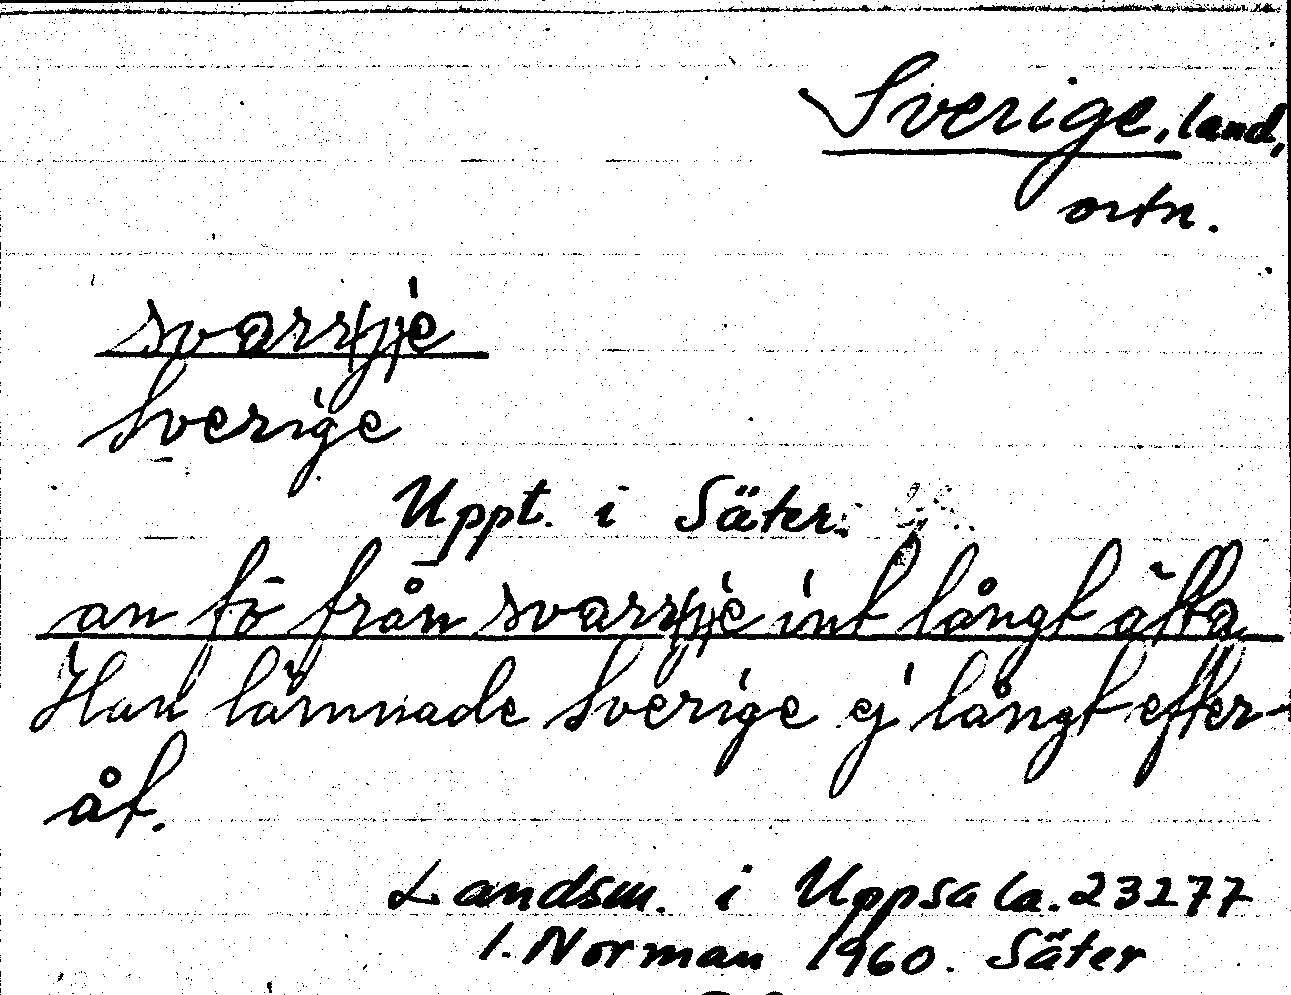 Sverige, land,
ortn.
svarrje
Sverige
Uppt. i Säter.
an fö från svarrje int långt ätta
Han lämnade Sverige ej långt efter-
åt.
Landsm. i Uppsala. 23277
I. Norman 1960. Säter